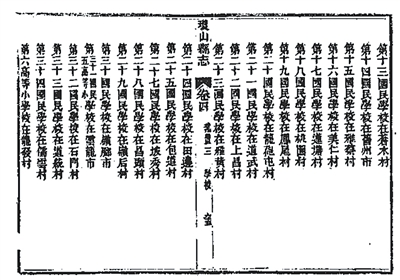 第十三國民學校在若木村
第十四國民學校在舊州市
第十五國民學校在雅蔡村
第十六國民學校在美仁村
第十七國民學校在蓮塘村
第十八國民學校在桃園村
第十九國民學校在鳳尾村
第二十國民學校在龍砲屯村
第二十一國民學校在道武村
第二十二國民學校在上昌村
第二十三國民學校在雅黃村
瓊山縣志 卷 學校
第二十四國民學校在田邊村
第二十五國民學校在包道村
第二十六國民學校在
第二十七國民學校在坡秀村
第二十八國民學校在昌頭村
第二十九國民學校在嶺后村
第三十國民學校在鐵廊市
第五高等小學校在雲龍市
第三十一國民
第三十二國民學校在石門村
第三十三國民學校在道統村
第三十四國民學校在儒林村
第六高等小學校在龍發村